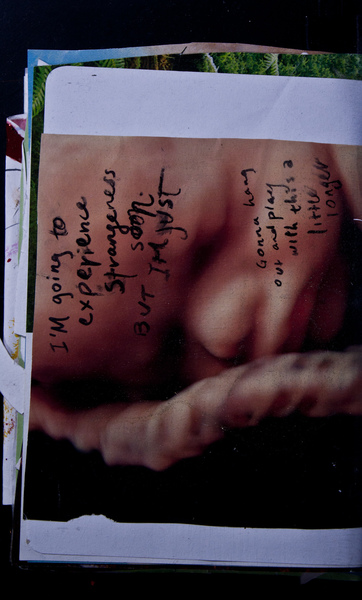 I'M going to
experience
strangeness
soon.
BUT I'M JUST
Gonna hang
out and play
with this a
little
longer